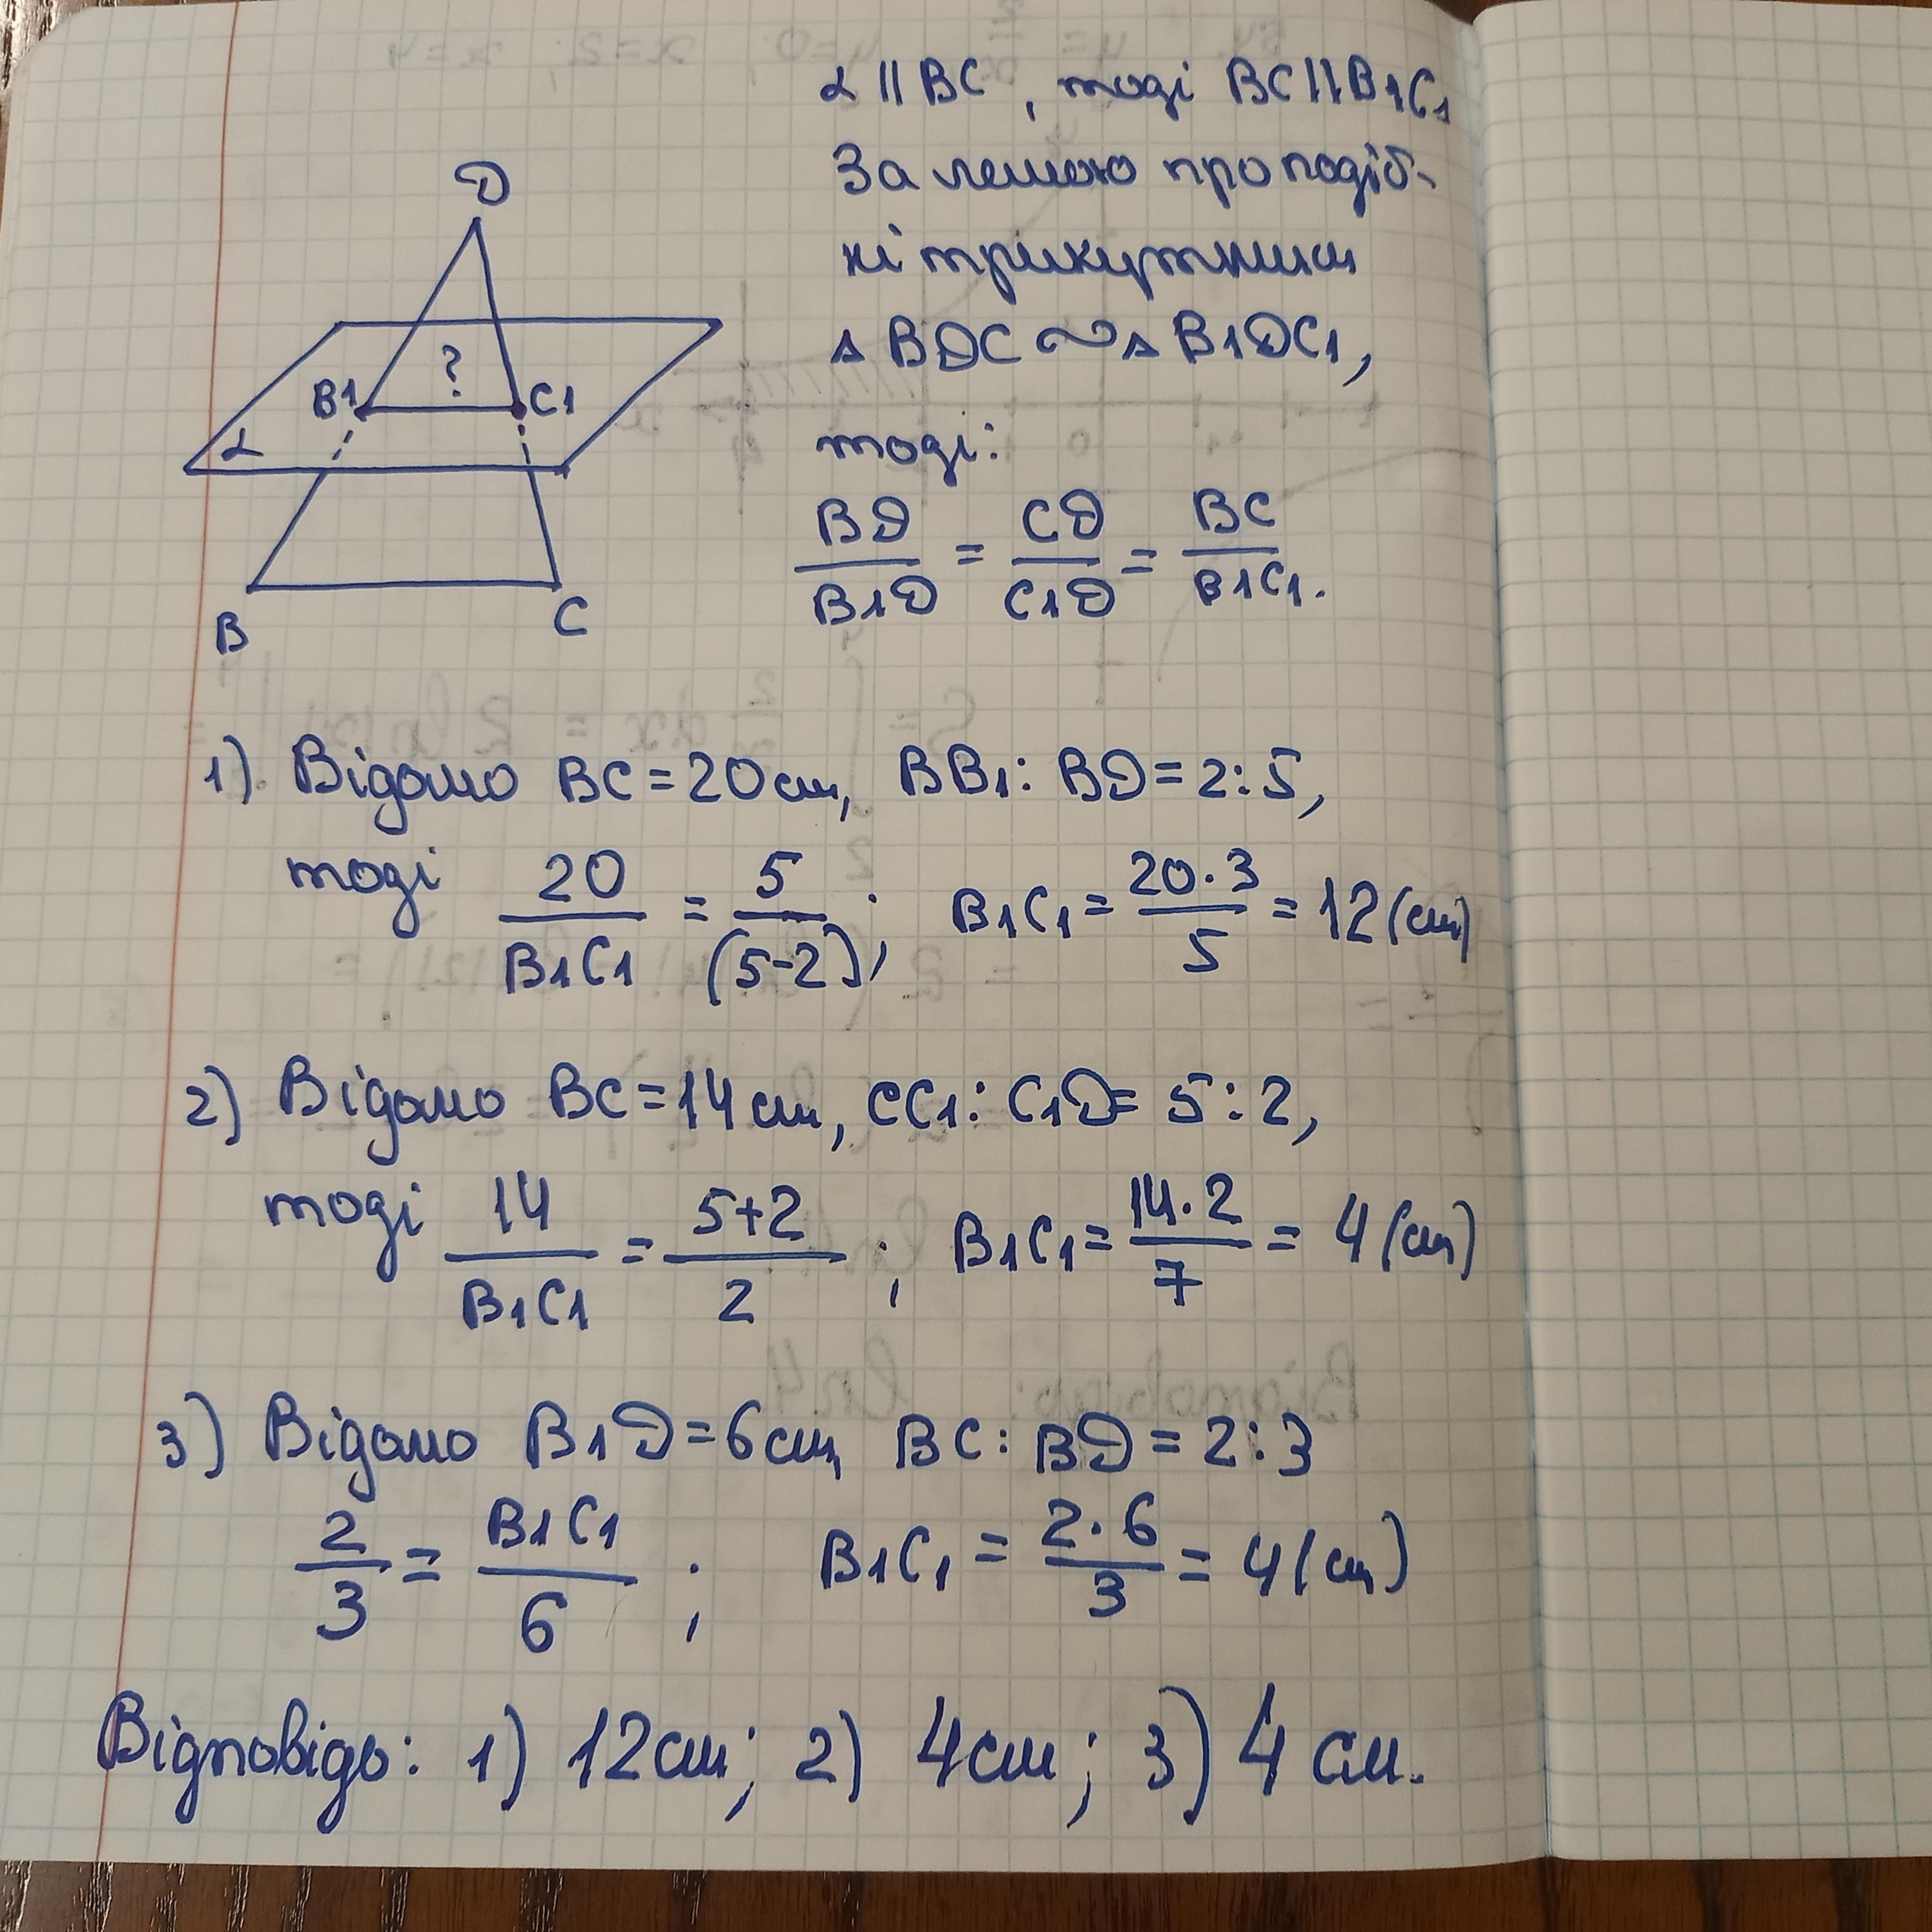 α || BC, тоді BC || B1C1
За лемою про подіб-
ні трикутники
Δ BDC ∾ Δ B1DC1,
тоді:
BD/B1D = CD/C1D = BC/B1C1.
D
?
B1 C1
α
B C
1) Відомо BC = 20 см, BB1 : BD = 2 : 5,
тоді 20/B1C1 = 5/(5-2); B1C1 = 20·3/5 = 12 (см)
2) Відомо BC = 14 см, CC1 : C1D = 5 : 2,
тоді 14/B1C1 = 5+2/2; B1C1 = 14·2/7 = 4 (см)
3) Відомо B1D = 6 см, BC : BD = 2 : 3
2/3 = B1C1/6; B1C1 = 2·6/3 = 4 (см)
Відповідь: 1) 12 см; 2) 4 см; 3) 4 см.